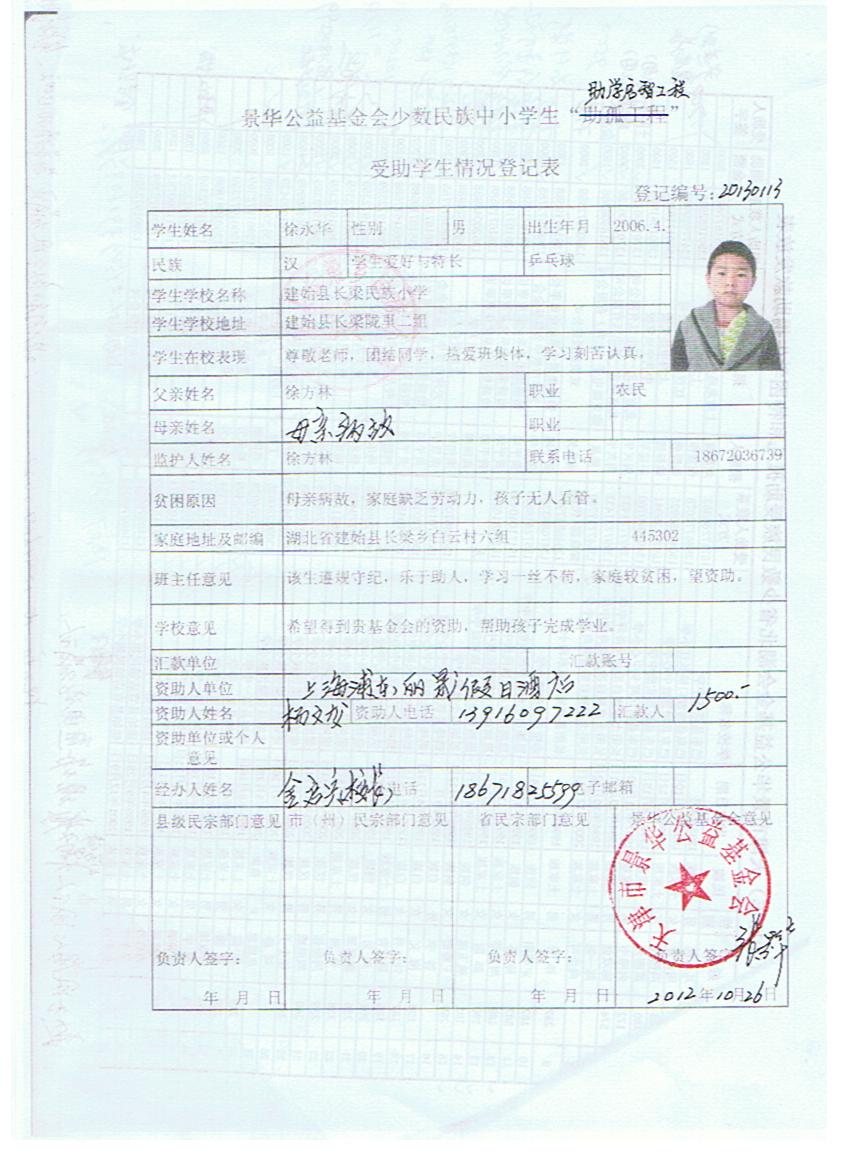 助学启智工程
景华公益基金会少数民族中小学生“助孤工程”
受助学生情况登记表
登记编号:20130113
学生姓名 徐永华 性别 男 出生年月 2006.4.
民族 汉 学生爱好与特长 乒乓球
学生学校名称 建始县长梁民族小学
学生学校地址 建始县长梁陇里二组
学生在校表现 尊敬老师，团结同学，热爱班集体，学习刻苦认真，
父亲姓名 徐方林 职业 农民
母亲姓名 母亲病故 职业
监护人姓名 徐方林 联系电话 18672036739
贫困原因 母亲病故，家庭缺乏劳动力，孩子无人看管。
家庭地址及邮编 湖北省建始县长梁乡白云村六组 445302
班主任意见 该生遵规守纪，乐于助人，学习一丝不苟，家庭较贫困，望资助。
学校意见 希望得到贵基金会的资助，帮助孩子完成学业。
汇款单位 汇款账号
资助人单位 上海浦东丽景假日酒店
资助人姓名 杨文龙 资助人电话 13916097222 汇款人 1500.-
资助单位或个人
意见
经办人姓名 电话 18671825599 电子邮箱
县级民宗部门意见 市（州）民宗部门意见 省民宗部门意见 景华公益基金会意见
天津市景华公益基金会
负责人签字： 负责人签字： 负责人签字： 负责人签字
年 月 日 年 月 日 年 月 日 2012年10月26日